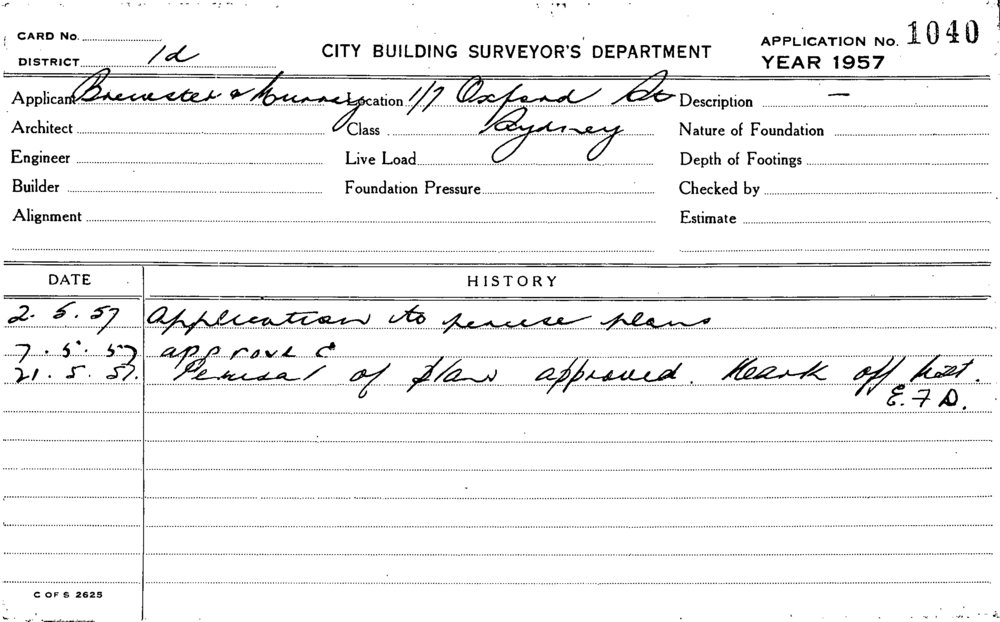 CARD No.
DISTRICT 1d
CITY BUILDING SURVEYOR'S DEPARTMENT
APPLICATION No. 1040
YEAR 1957
Applicant Brewster & Murray Location 1/7 Oxford St Description —
Architect Class Sydney Nature of Foundation
Engineer Live Load Depth of Footings
Builder Foundation Pressure Checked by
Alignment Estimate
DATE HISTORY
2. 5. 57 Application to peruse plans
7. 5. 57 approved
21. 5. 57. Perusal of plans approved. Mark off
E. F. D.
C OF S 2625